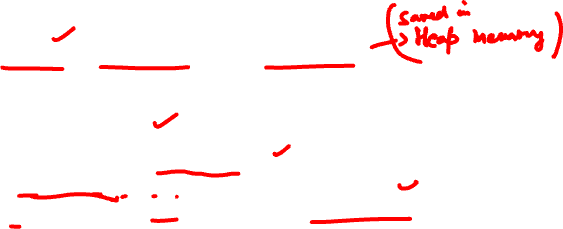 (saved in
→ Heap memory)